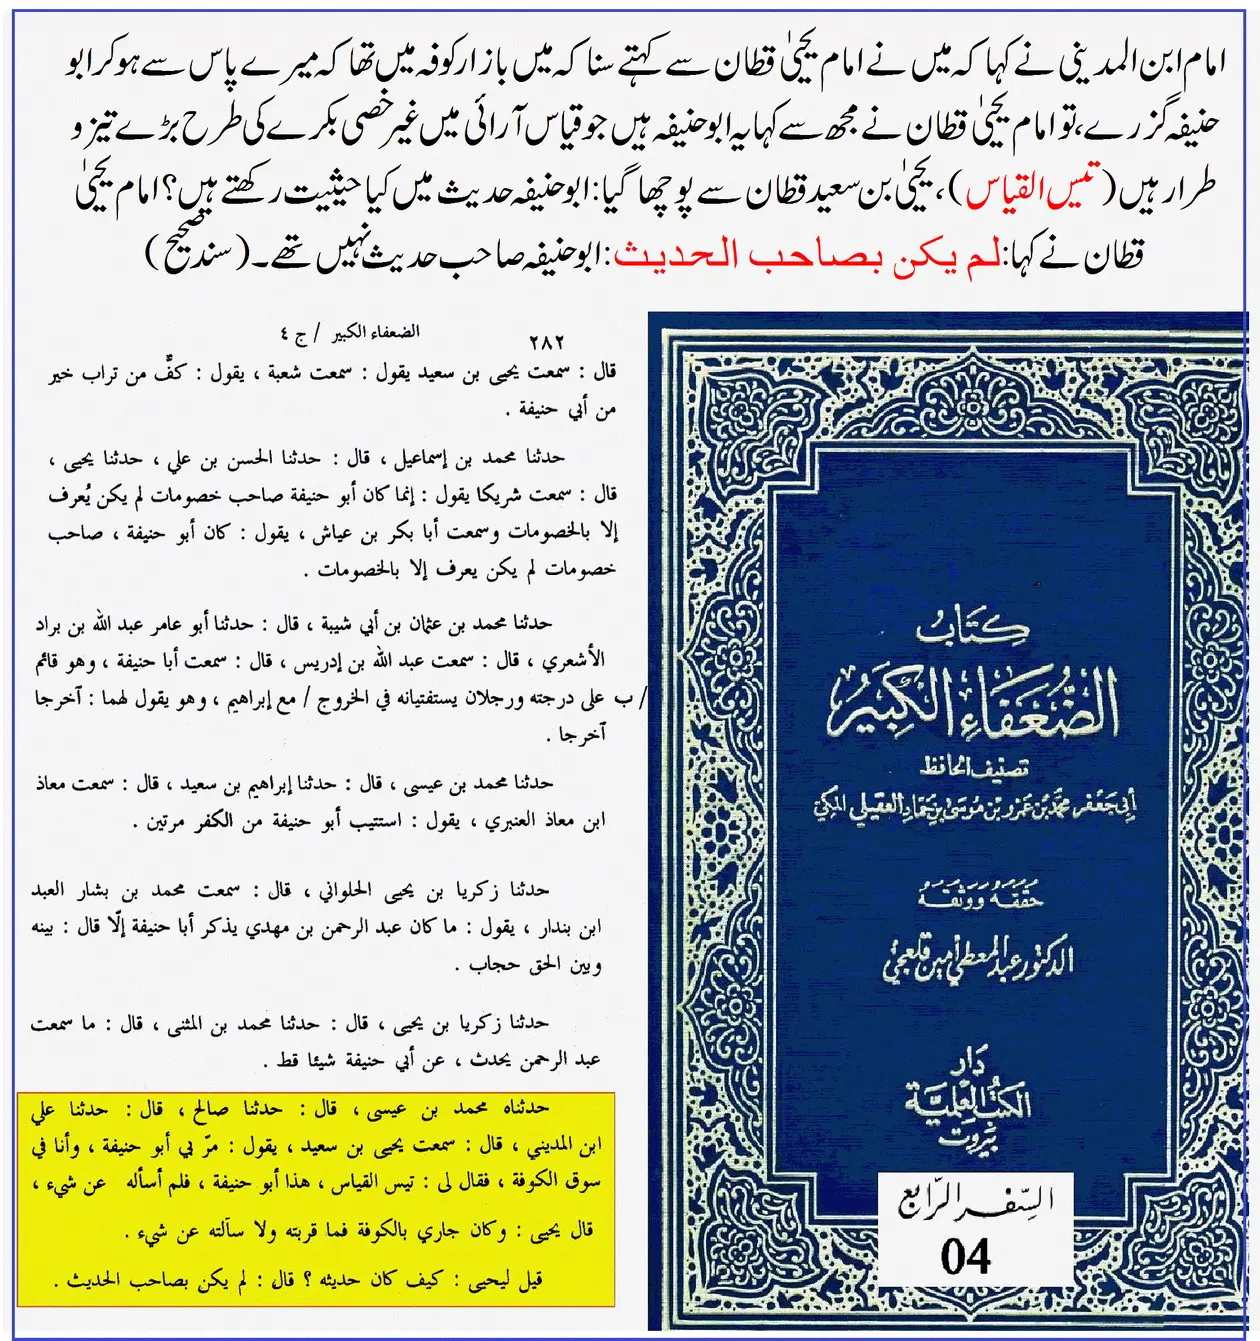 امام ابن المدینی نے کہا کہ میں نے امام یحییٰ قطان سے کہتے سنا کہ میں بازار کوفہ میں تھا کہ میرے پاس سے ہو کر ابو
حنیفہ گزرے، تو امام یحییٰ قطان نے مجھ سے کہا یہ ابو حنیفہ ہیں جو قیاس آرائی میں غیر خصی بکرے کی طرح بڑے تیز و
طرار ہیں (تیس القیاس)، یحییٰ بن سعید قطان سے پوچھا گیا: ابو حنیفہ حدیث میں کیا حیثیت رکھتے ہیں؟ امام یحییٰ
قطان نے کہا: لم یکن بصاحب الحدیث: ابو حنیفہ صاحب حدیث نہیں تھے۔ (سند صحیح)
٢٨٢ الضعفاء الكبير / ج ٤
قال : سمعت يحيى بن سعيد يقول : سمعت شعبة ، يقول : كفٌّ من تراب خير
من أبي حنيفة .
حدثنا محمد بن إسماعيل ، قال : حدثنا الحسن بن علي ، حدثنا يحيى ،
قال : سمعت شريكا يقول : إنما كان أبو حنيفة صاحب خصومات لم يكن يُعرف
إلا بالخصومات وسمعت أبا بكر بن عياش ، يقول : كان أبو حنيفة ، صاحب
خصومات لم يكن يعرف إلا بالخصومات .
حدثنا محمد بن عثمان بن أبي شيبة ، قال : حدثنا أبو عامر عبد الله بن براد
الأشعري ، قال : سمعت عبد الله بن إدريس ، قال : سمعت أبا حنيفة ، وهو قائم
/ ب على درجته ورجلان يستفتيانه في الخروج / مع إبراهيم ، وهو يقول لهما : آخرجا
آخرجا .
حدثنا محمد بن عيسى ، قال : حدثنا إبراهيم بن سعيد ، قال : سمعت معاذ
ابن معاذ العنبري ، يقول : استتيب أبو حنيفة من الكفر مرتين .
حدثنا زكريا بن يحيى الحلواني ، قال : سمعت محمد بن بشار العبد
ابن بندار ، يقول : ما كان عبد الرحمن بن مهدي يذكر أبا حنيفة إلّا قال : بينه
وبين الحق حجاب .
حدثنا زكريا بن يحيى ، قال : حدثنا محمد بن المثنى ، قال : ما سمعت
عبد الرحمن يحدث ، عن أبي حنيفة شيئا قط .
حدثناه محمد بن عيسى ، قال : حدثنا صالح ، قال : حدثنا علي
ابن المديني ، قال : سمعت يحيى بن سعيد ، يقول : مرّ بي أبو حنيفة ، وأنا في
سوق الكوفة ، فقال لى : تيس القياس ، هذا أبو حنيفة ، فلم أسأله عن شيء ،
قال يحيى : وكان جاري بالكوفة فما قربته ولا سآلته عن شيء .
قيل ليحيى : كيف كان حديثه ؟ قال : لم يكن بصاحب الحديث .
كِتَابُ
الضُّعَفَاءِ الكَبِيرُ
تصنيف الحافظ
أبي جَعفَر محمَّد بن عَمرو بن مُوسَى بن حمَّاد العقيلي المكيّ
حَقّقَهُ وَوَثّقَهُ
الدكتور عبد المعطي أمين قلعجي
دَار
الكتب العلميَّة
بَيروت
السّفر الرّابع
04